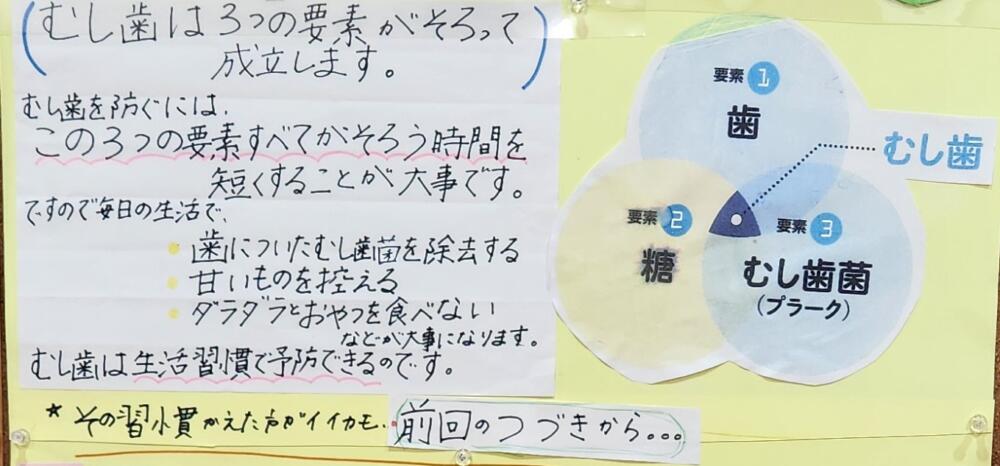 むし歯は3つの要素がそろって
成立します。
むし歯を防ぐには、
この3つの要素すべてがそろう時間を
短くすることが大事です。
ですので毎日の生活で、
歯についたむし歯菌を除去する
甘いものを控える
ダラダラとおやつを食べない
などが大事になります。
むし歯は生活習慣で予防できるのです。
要素 1
歯
むし歯
要素 2
糖
要素 3
むし歯菌
(プラーク)
★ その習慣かえた方がイイカモ..
前回のつづきから...